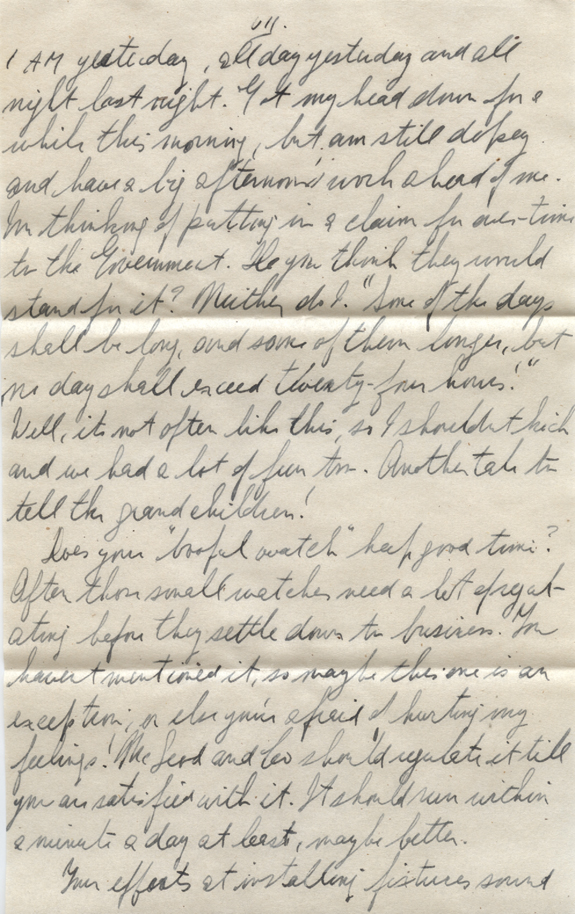 VII.
1 AM yesterday, all day yesterday and all
night last night. Got my head down for a
while this morning, but am still dopey
and have a big afternoon's work ahead of me.
I'm thinking of putting in a claim for over-time
to the Government. Do you think they would
stand for it? Neither do I. "Some of the days
shall be long, and some of them longer, but
no day shall exceed twenty-four hours!"
Well, it's not often like this, so I shouldn't kick
and we had a lot of fun too. Another tale to
tell the grandchildren!
Does your "booful watch" keep good time?
Often those small watches need a lot of regul-
ating before they settle down to business. You
haven't mentioned it, so maybe this one is an
exception, or else you're afraid of hurting my
feelings! McLeod and Co should regulate it till
you are satisfied with it. It should run within
a minute a day at least, maybe better.
Your efforts at installing fixtures sound